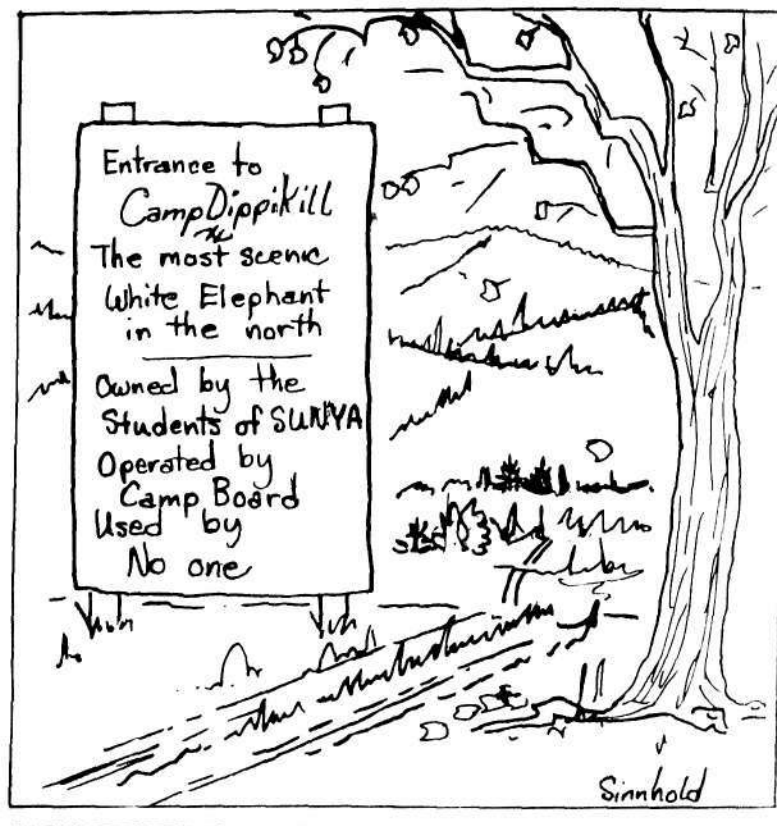 Entrance to
Camp Dippikill
The most scenic
White Elephant
in the north
Owned by the
Students of SUNYA
Operated by
Camp Board
Used by
No one
Sinnhold